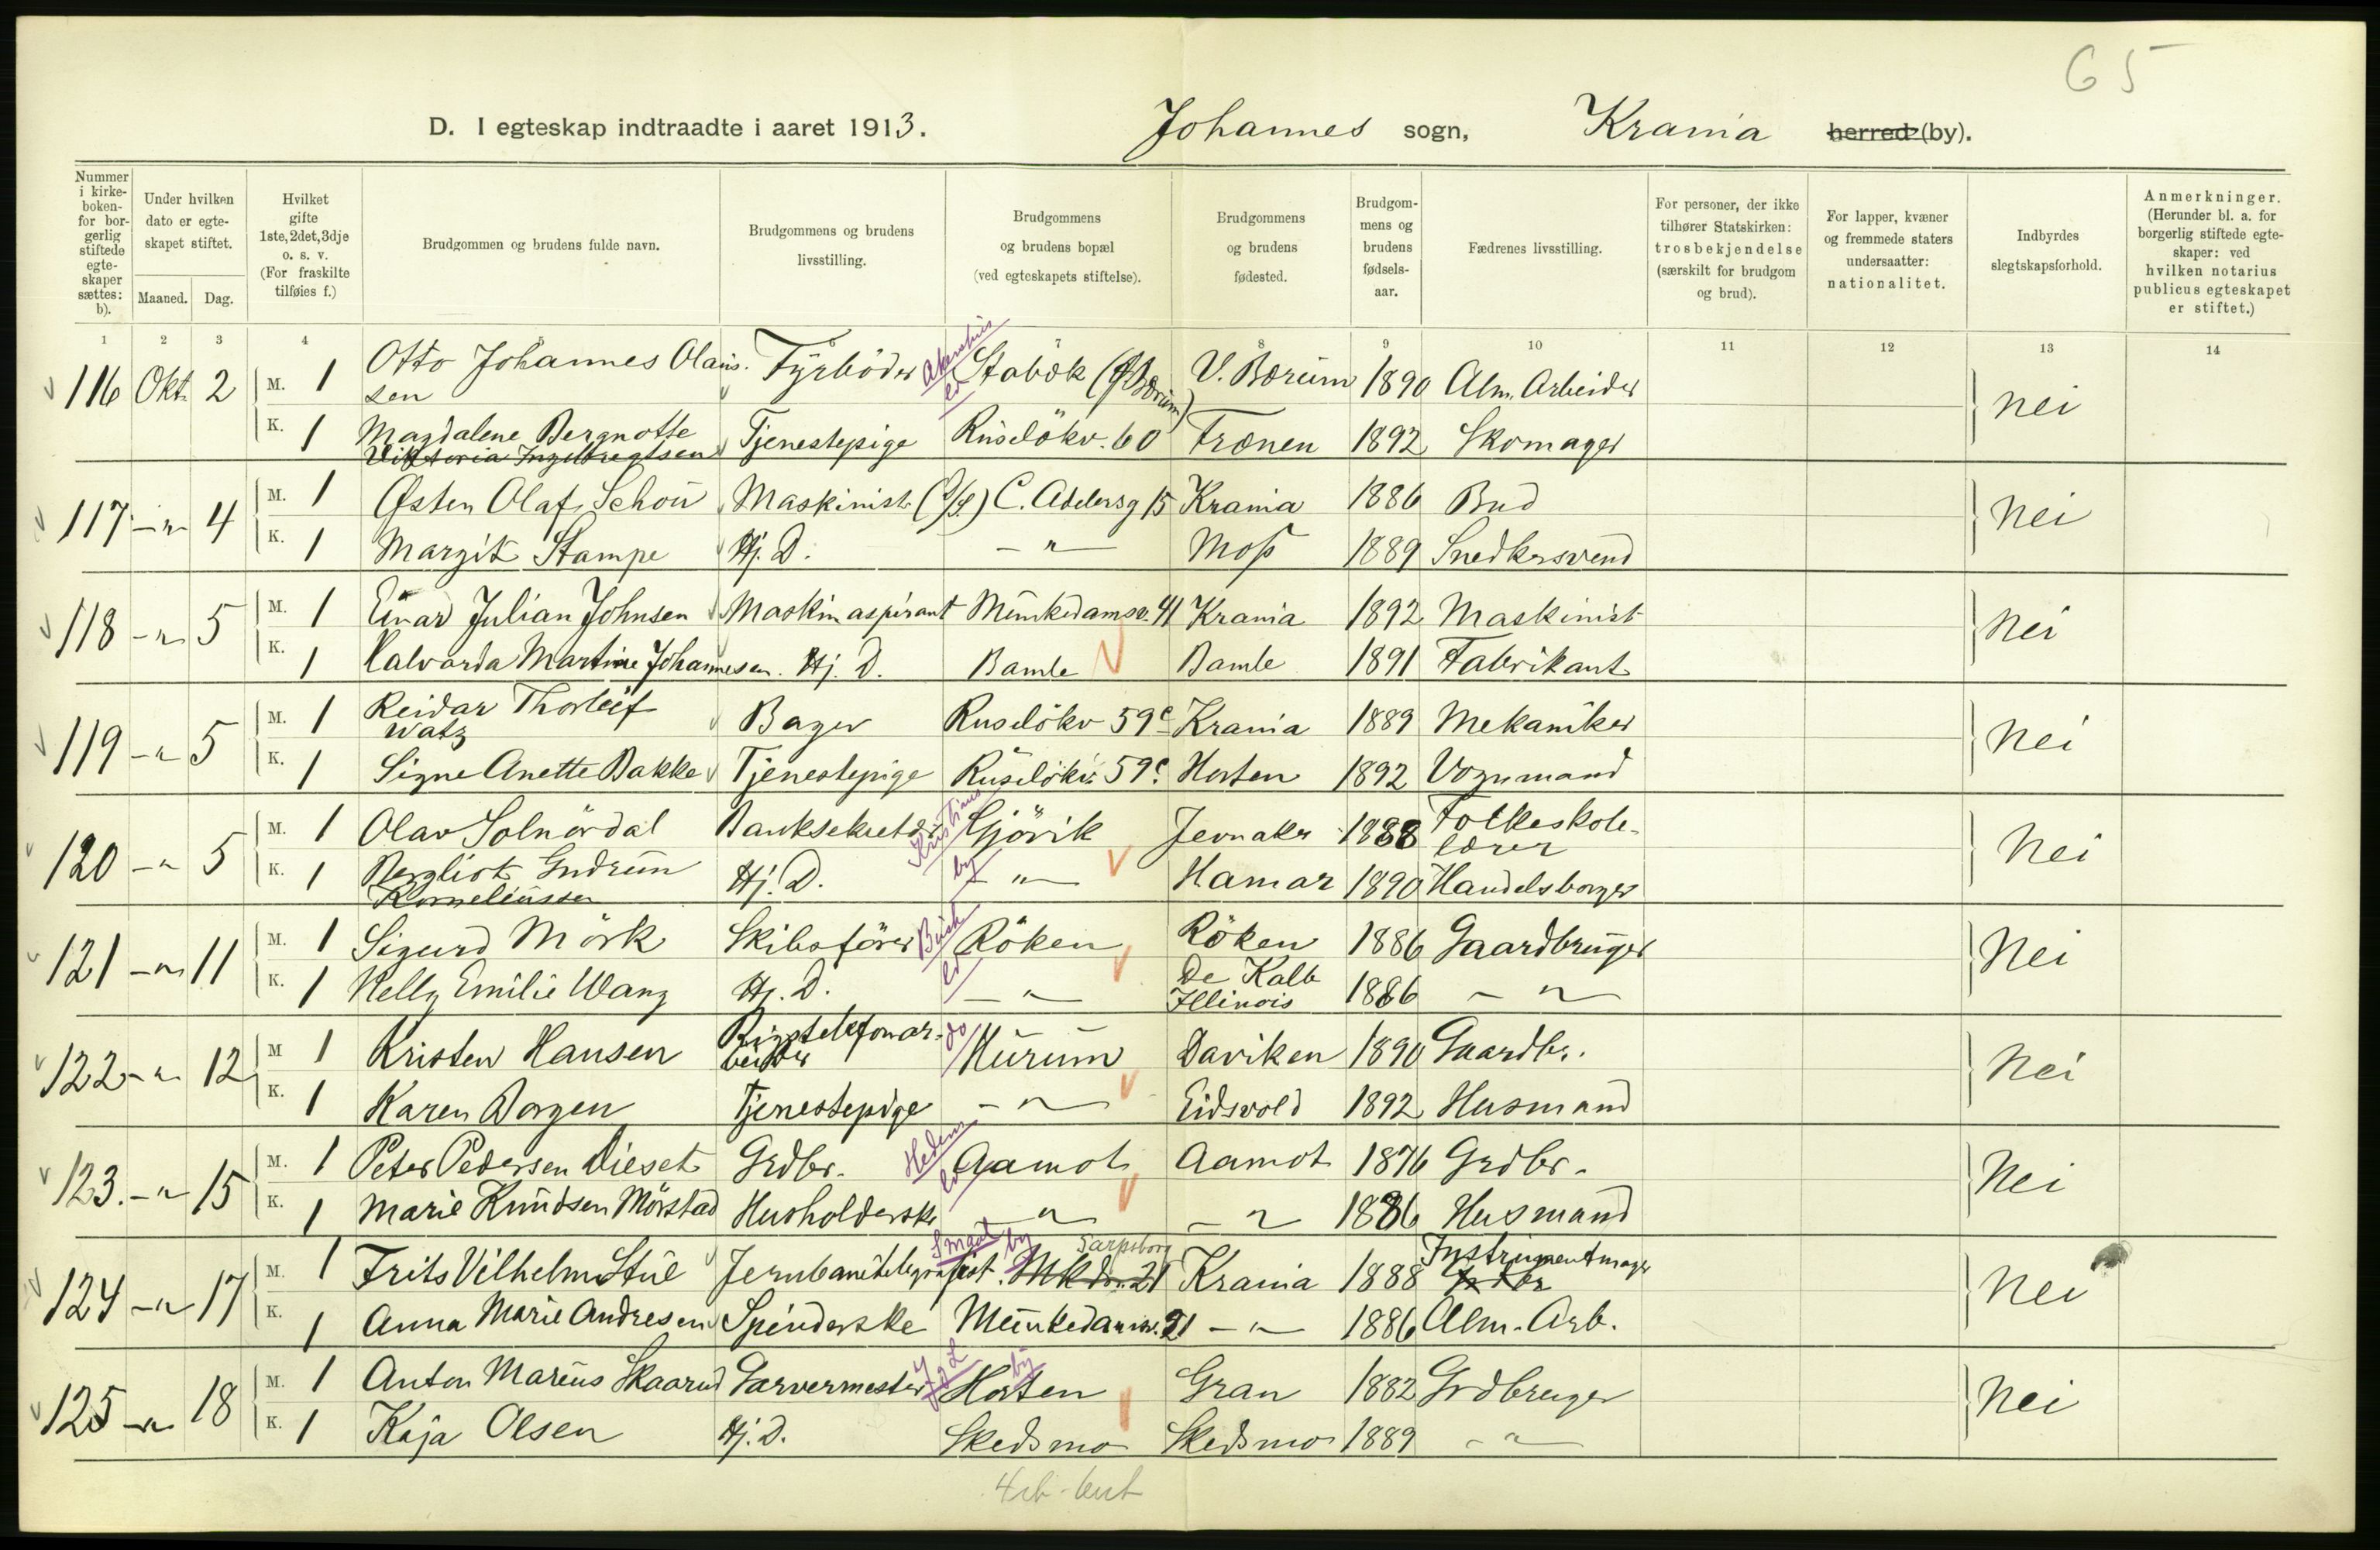 65
D. I egteskap indtraadte i aaret 1913. Johannes sogn, Krania herred (by).
Nummer i kirkeboken for borgerlig stiftede egteskaper sættes: b).
Under hvilken dato er egteskapet stiftet.
Maaned. Dag.
Hvilket gifte 1ste, 2det, 3dje o. s. v. (For fraskilte tilføies f.)
Brudgommen og brudens fulde navn.
Brudgommens og brudens livsstilling.
Brudgommens og brudens bopæl (ved egteskapets stiftelse).
Brudgommens og brudens fødested.
Brudgommens og brudens fødselsaar.
Fædrenes livsstilling.
For personer, der ikke tilhører Statskirken: trosbekjendelse (særskilt for brudgom og brud).
For lapper, kvæner og fremmede staters undersaatter: nationalitet.
Indbyrdes slegtskapsforhold.
Anmerkninger. (Herunder bl. a. for borgerlig stiftede egteskaper: ved hvilken notarius publicus egteskapet er stiftet.)
1 2 3 4 7 8 9 10 11 12 13 14
116 Okt. 2 M. 1 Otto Johannes Olaussen Fyrböder Akershus Stabæk (V. Bærum) V. Bærum 1890 Alm. Arbeider Nei
K. 1 Magdalene Bergnotte Viktoria Ingebregtsen Tjenestepige Ruselökv. 60 Trænen 1892 Skomager
117 -"- 4 M. 1 Østen Olaf Schou Maskinist (D/S) C. Adelersg 15 Krania 1886 Bud Nei
K. 1 Margit Stampe Hj. D. -"- Moss 1889 Snedkersvend
118 -"- 5 M. 1 Einar Julian Johnsen Maskinaspirant Munkedamsv. 41 Krania 1892 Maskinist Nei
K. 1 Halvarda Martine Johannesen Hj. D. Bamle Bamle 1891 Fabrikant
119 -"- 5 M. 1 Reidar Thorleif Watz Bager Ruselökv 59c Krania 1889 Mekaniker Nei
K. 1 Signe Anette Bakke Tjenestepige Ruselökv. 59c Horten 1892 Vognmand
120 -"- 5 M. 1 Olav Solnördal Banksekretær Kristians by Gjövik Jevnaker 1888 Folkeskolelærer Nei
K. 1 Bergliot Gudrun Korneliussen Hj. D. -"- Hamar 1890 Handelsborger
121 -"- 11 M. 1 Sigurd Mörk Skibsförer Busk ld Röken Röken 1886 Gaardbruger Nei
K. 1 Nelly Emilie Wang Hj. D. -"- De Kalb Illinois 1886 -"-
122 -"- 12 M. 1 Kristen Hansen Rigstelefonarbeider do Hurum Daviken 1890 Gaardbr. Nei
K. 1 Karen Dorgen Tjenestepige -"- Eidsvold 1892 Husmand
123. -"- 15 M. 1 Peter Pedersen Dieset Grdbr. Hedem ld Aamot Aamot 1876 Grdbr. Nei
K. 1 Marie Knudsen Mörstad Husholderske -"- -"- 1886 Husmand
124 -"- 17 M. 1 Frits Vilhelm Stue Jernbanetelegrafist Smaal by Sarpsborg Mkdv. 21 Krania 1888 Instrumentmager Nei
K. 1 Anna Marie Andresen Spinderske Munkedamsv. 21 -"- 1886 Alm. Arb.
125 -"- 18 M. 1 Anton Marius Skaarud Garvermester J & L by Horten Gran 1882 Grdbruger Nei
K. 1 Kaja Olsen Hj. D. Skedsmo Skedsmo 1889 -"-